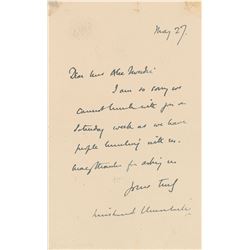 May 27.
Dear Mrs Alec Tweedie
I am so sorry we
cannot lunch with you on
Saturday week as we have
people lunching with us.
Many thanks for asking us
Yours truly
Churchill